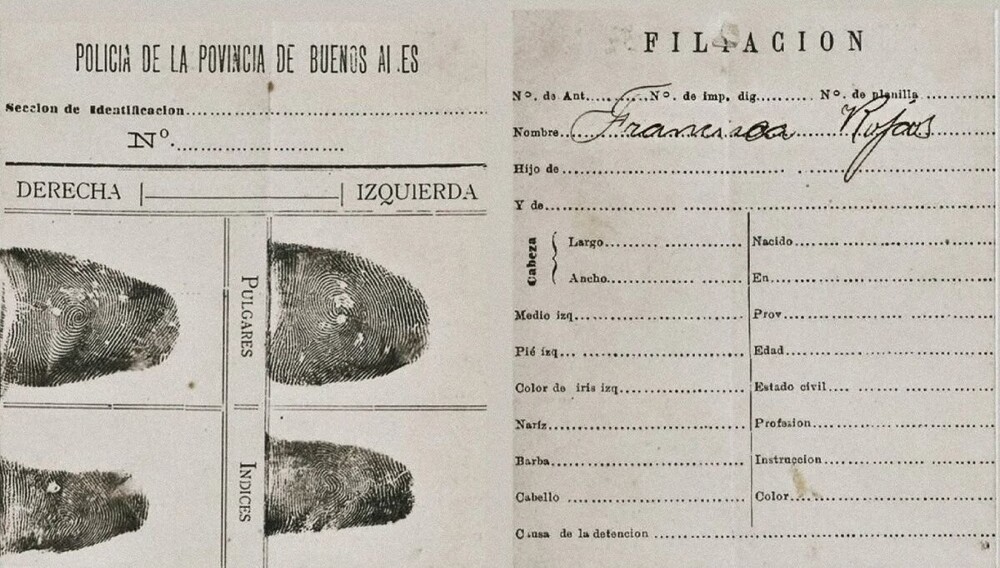 POLICIA DE LA POVINCIA DE BUENOS AI.ES
Seccion de Identificacion
Nº.
DERECHA IZQUIERDA
PULGARES
INDICES
FILIACION
Nº. de Ant. Nº. de imp. dig. Nº. de planilla
Nombre Francisca Rojas
Hijo de
Y de
Cabeza
Largo
Ancho
Medio izq
Pié izq
Color de iris izq
Nariz
Barba
Cabello
Nacido
En
Prov
Edad
Estado civil
Profesion
Instruccion
Color
Causa de la detencion